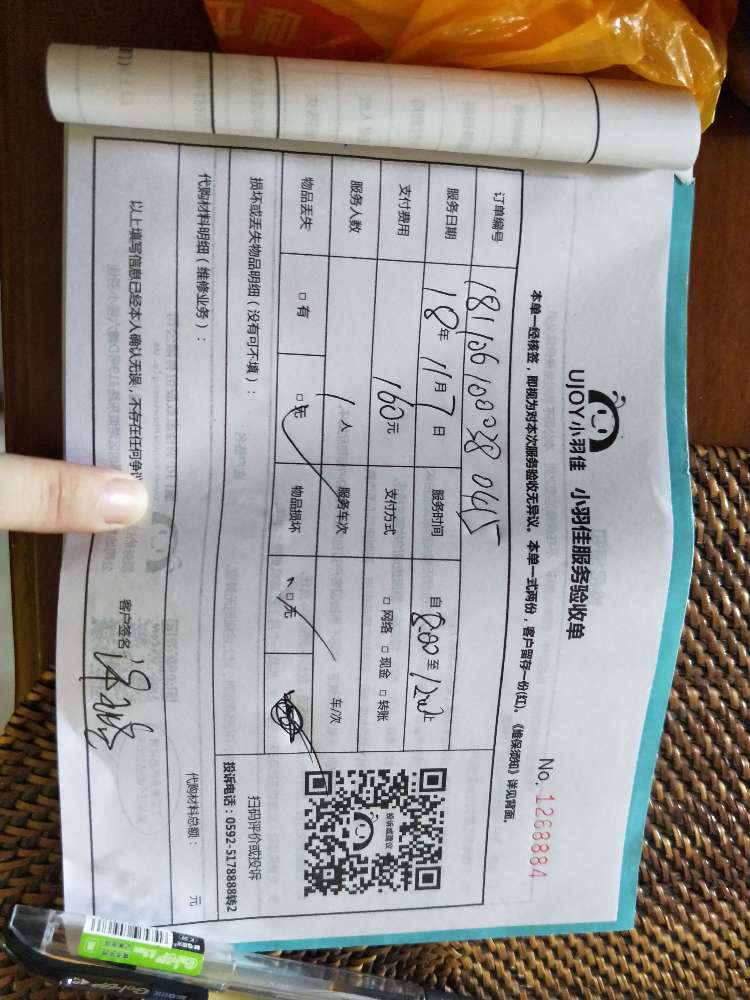 UJOY小羽佳 小羽佳服务验收单
No. 1268884
本单一经核签，即视为对本次服务验收无异议。本单一式两份，客户留存一份(红)。《维保须知》详见背面。
订单编号
服务日期 18年 11月 7日 服务时间 自 8:00 至 12:00 止
支付费用 160元 支付方式 □ 网络 □ 现金 □ 转账
服务人数 1人 服务车次 车/次
物品丢失 □ 有 □ 无 物品损坏 □ 无
损坏或丢失物品明细（没有可不填）：
投诉或建议
扫码评价或投诉
投诉电话：0592-5178888转2
代购材料明细（维修业务）：
代购材料总额： 元
以上填写信息已经本人确认无误，不存在任何争
客户签名